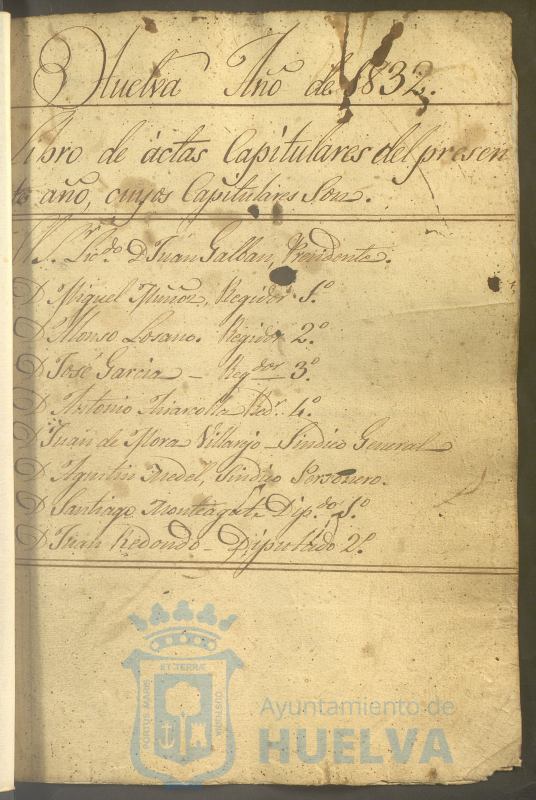 Huelva Año de 1832.
Libro de áctas Capitulares del presen
te año, cuyos Capitulares Son.
Sr. Licdo. D Juan Galban, Presidente.
D Miguel Muñoz, Regidor 1º
D Alonso Losano. Regidor 2º
D José Garcia – Regdor 3º
D Antonio Rdr. 4º
D Juan de Mora Villarejo – Sindico General
D Agustin Medel, Sindico Personero.
D Santiago Dipdo 1º
D Juan Redondo – Diputádo 2º
PORTUS MARIS
ET TERRÆ
CUSTODIA
Ayuntamiento de
HUELVA